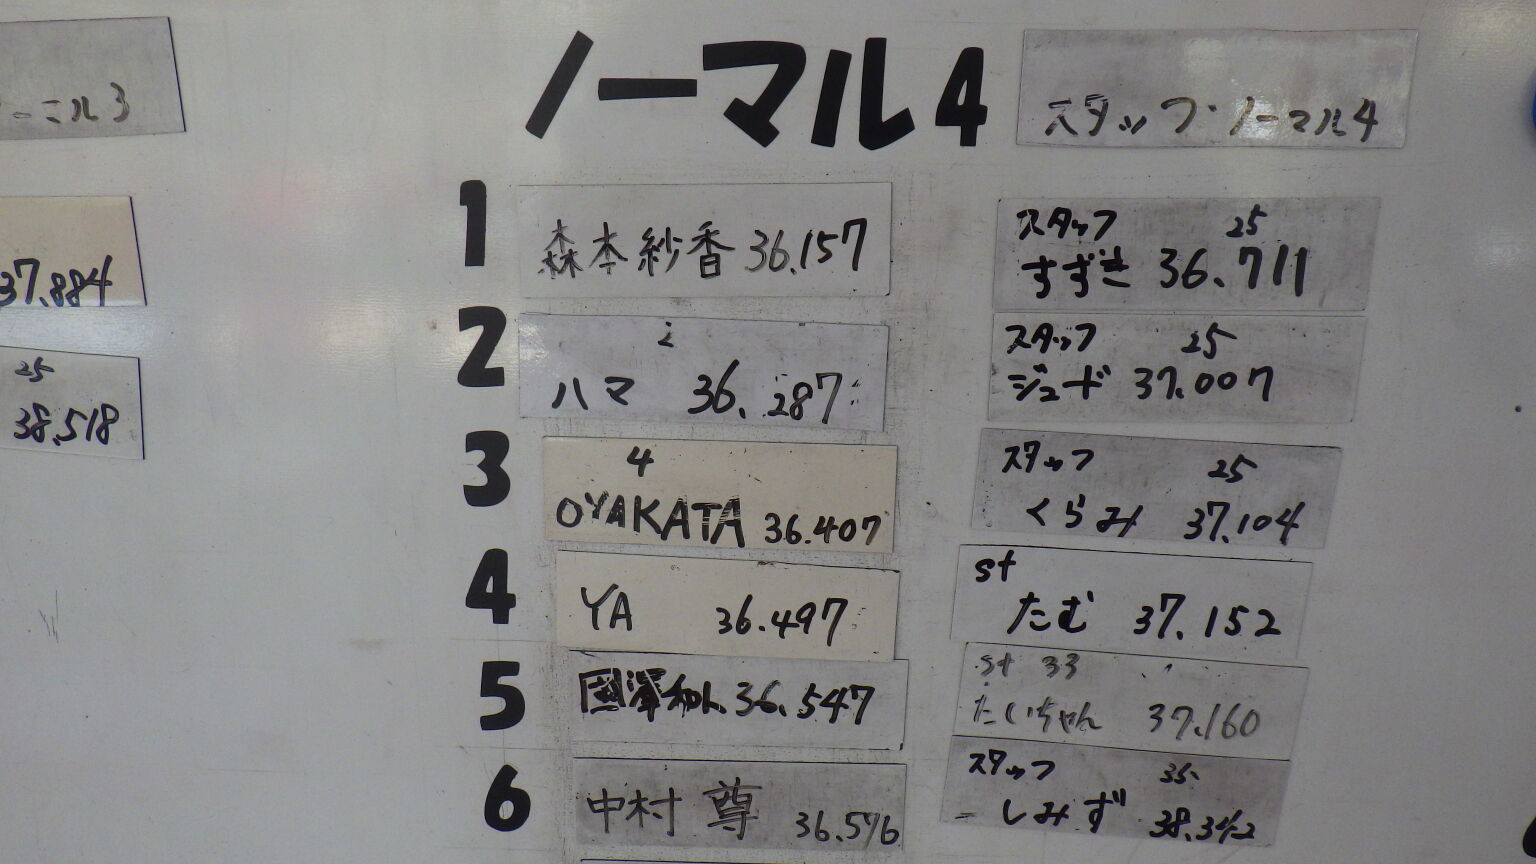 ール3
37.884
25
38.518
ノーマル4
1
森本紗香 36.157
2
2
ハマ 36.287
3
4
OYAKATA 36.407
4
YA 36.497
5
國澤和人 36.547
6
中村 尊 36.576
スタッフ・ノーマル4
スタッフ 25
すずき 36.711
スタッフ 25
ジュード 37.007
スタッフ 25
くらみ 37.104
st
たむ 37.152
st 33
たいちゃん 37.160
スタッフ 35
しみず 38.342